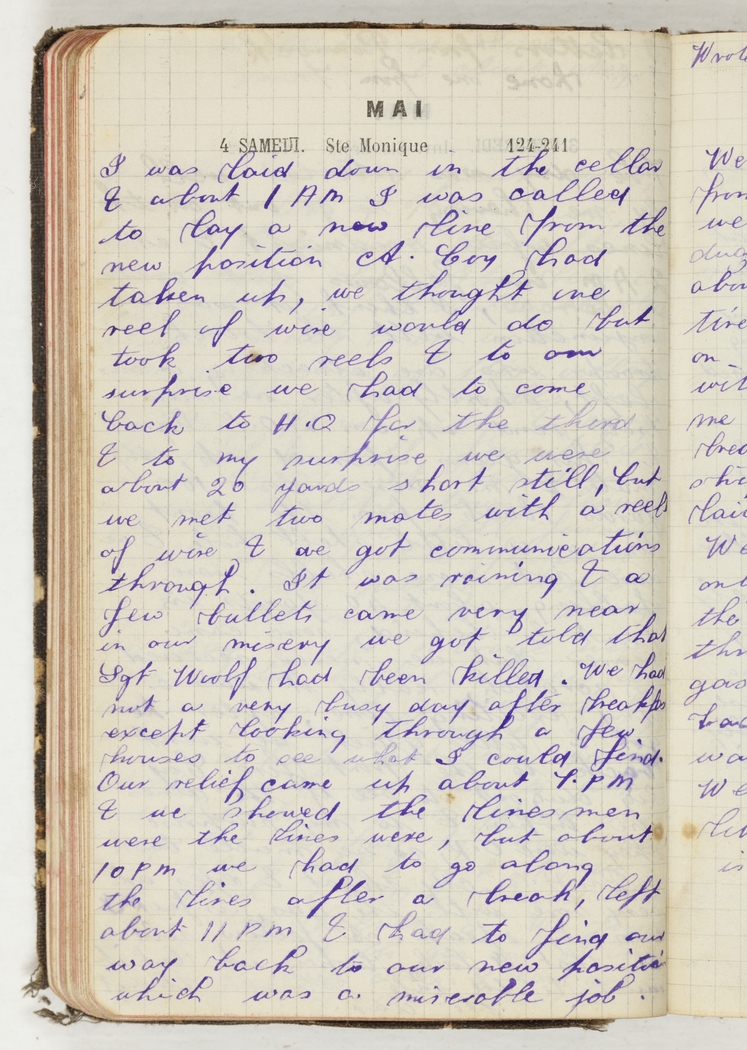 MAI
4 SAMEDI. Ste Monique 124-241
I was laid down in the cellar
& about 1 AM I was called
to lay a new line from the
new position A. Coy had
taken up, we thought one
reel of wire would do but
took two reels & to our
surprise we had to come
back to H.Q for the third
& to my surprise we were
about 20 yards short still, but
we met two mates with a reels
of wire & we got communications
through. It was raining & a
few bullets came very near
in our misery we got told that
Sgt Woolf had been killed. We had
not a very busy day after breakfs
except looking through a few
houses to see what I could find.
Our relief came up about 7.PM
& we showed the linesmen
were the lines were, but about
10 PM we had to go along
the lines after a break, left
about 11 PM & had to find our
way back to our new positio
which was a miserable job.
Wrote
We
from
we
dug
abou
tire
on
wit
me
brea
laid
We
the
thr
gas
wa
We
is